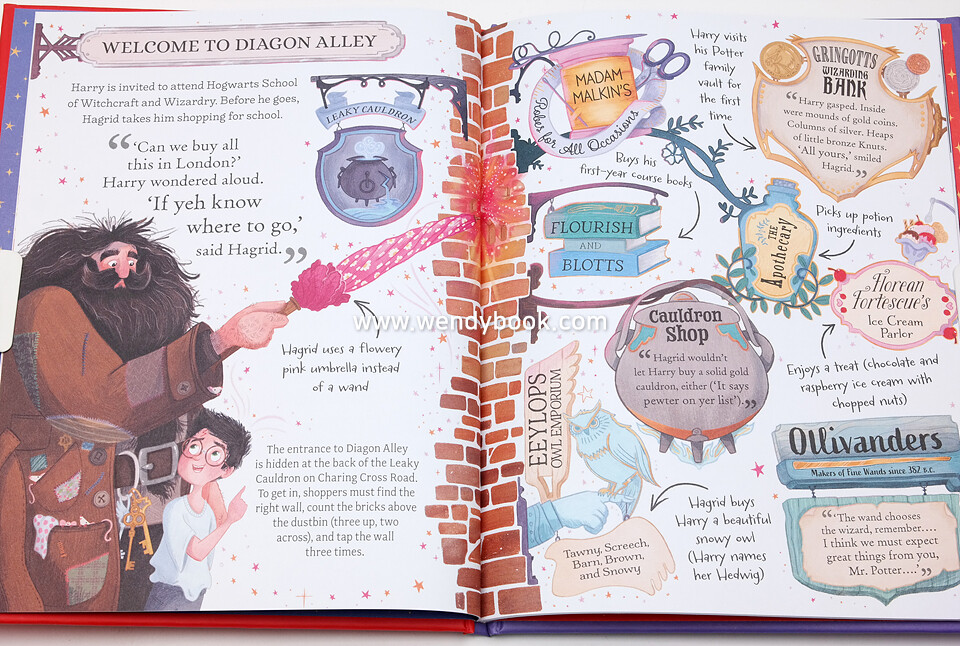 WELCOME TO DIAGON ALLEY
Harry is invited to attend Hogwarts School
of Witchcraft and Wizardry. Before he goes,
Hagrid takes him shopping for school.
“‘Can we buy all
this in London?’
Harry wondered aloud.
‘If yeh know
where to go,’
said Hagrid.”
LEAKY CAULDRON
Hagrid uses a flowery
pink umbrella instead
of a wand
The entrance to Diagon Alley
is hidden at the back of the Leaky
Cauldron on Charing Cross Road.
To get in, shoppers must find the
right wall, count the bricks above
the dustbin (three up, two
across), and tap the wall
three times.
MADAM
MALKIN'S
Robes for All Occasions
Harry visits
his Potter
family
vault for
the first
time
GRINGOTTS
WIZARDING
BANK
“Harry gasped. Inside
were mounds of gold coins.
Columns of silver. Heaps
of little bronze Knuts.
‘All yours,’ smiled
Hagrid.”
Buys his
first-year course books
FLOURISH
AND
BLOTTS
THE
Apothecary
Picks up potion
ingredients
Florean
Fortescue's
Ice Cream
Parlor
Enjoys a treat (chocolate and
raspberry ice cream with
chopped nuts)
Cauldron
Shop
“Hagrid wouldn't
let Harry buy a solid gold
cauldron, either (‘It says
pewter on yer list’).”
EEYLOPS
OWL EMPORIUM
Tawny, Screech,
Barn, Brown,
and Snowy
Hagrid buys
Harry a beautiful
snowy owl
(Harry names
her Hedwig)
Ollivanders
Makers of Fine Wands since 382 B.C.
“‘The wand chooses
the wizard, remember....
I think we must expect
great things from you,
Mr. Potter....’”
www.wendybook.com